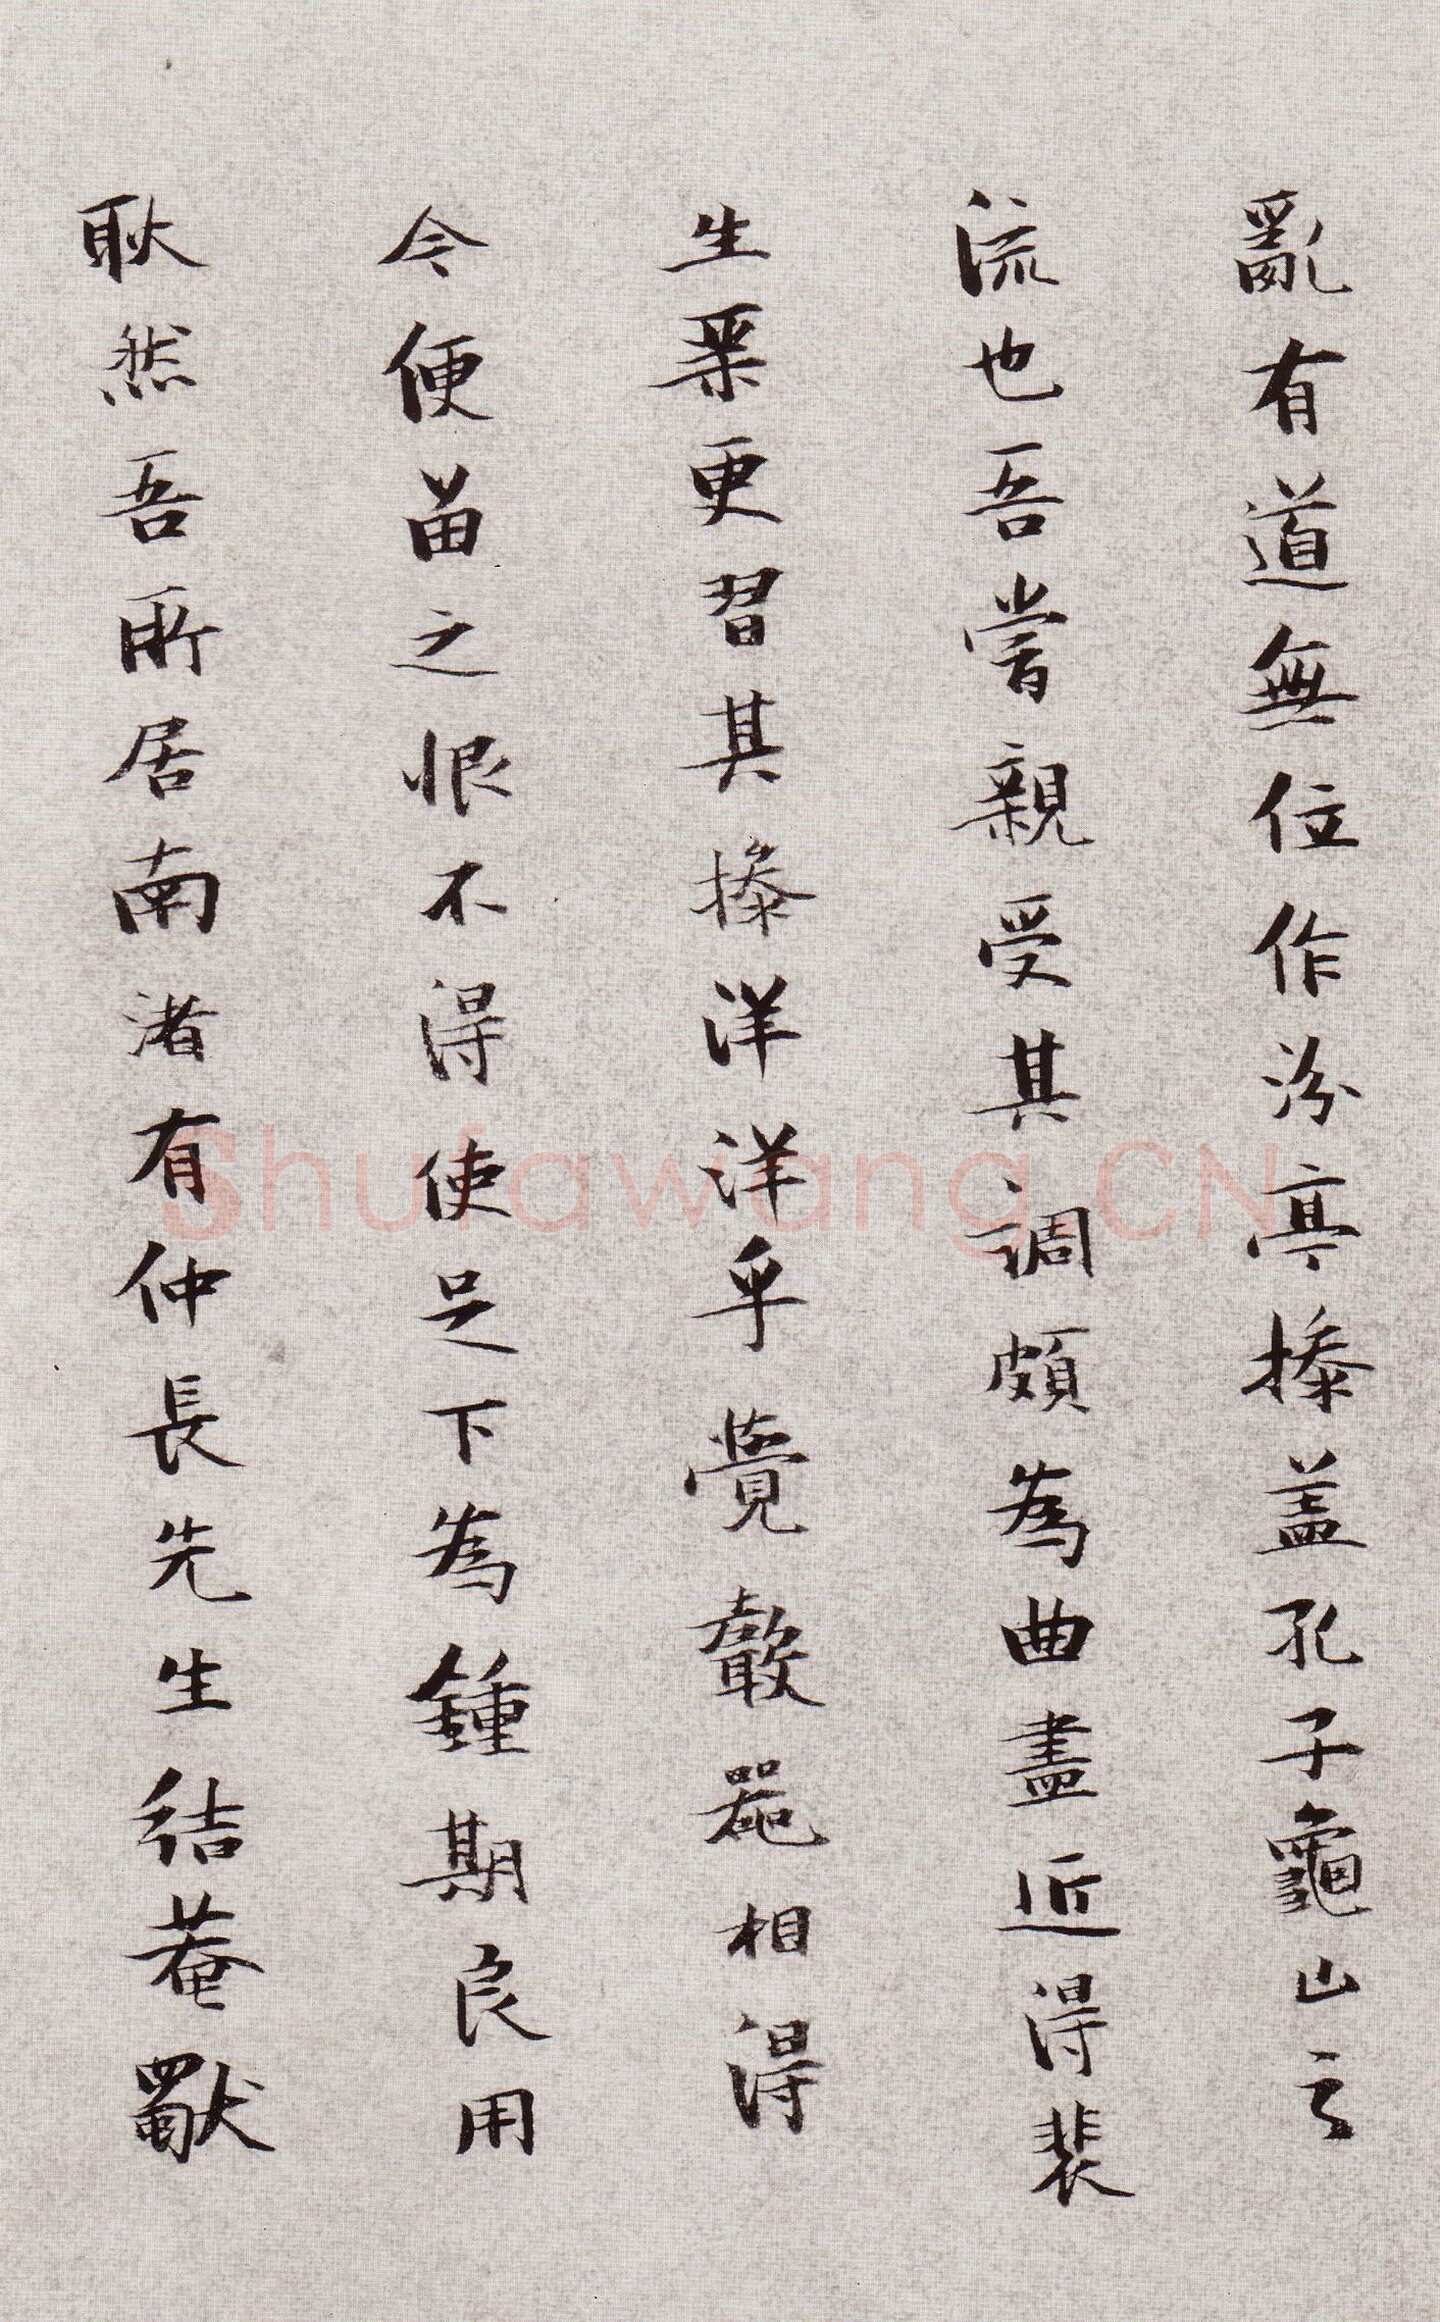 亂有道無位作汾亭操蓋孔子龜山之
流也吾嘗親受其調頗為曲盡近得裴
生琹更習其操洋洋乎覺聲器相得
今便留之恨不得使足下為鍾期良用
耿然吾所居南渚有仲長先生結菴獨
Shufawang.CN